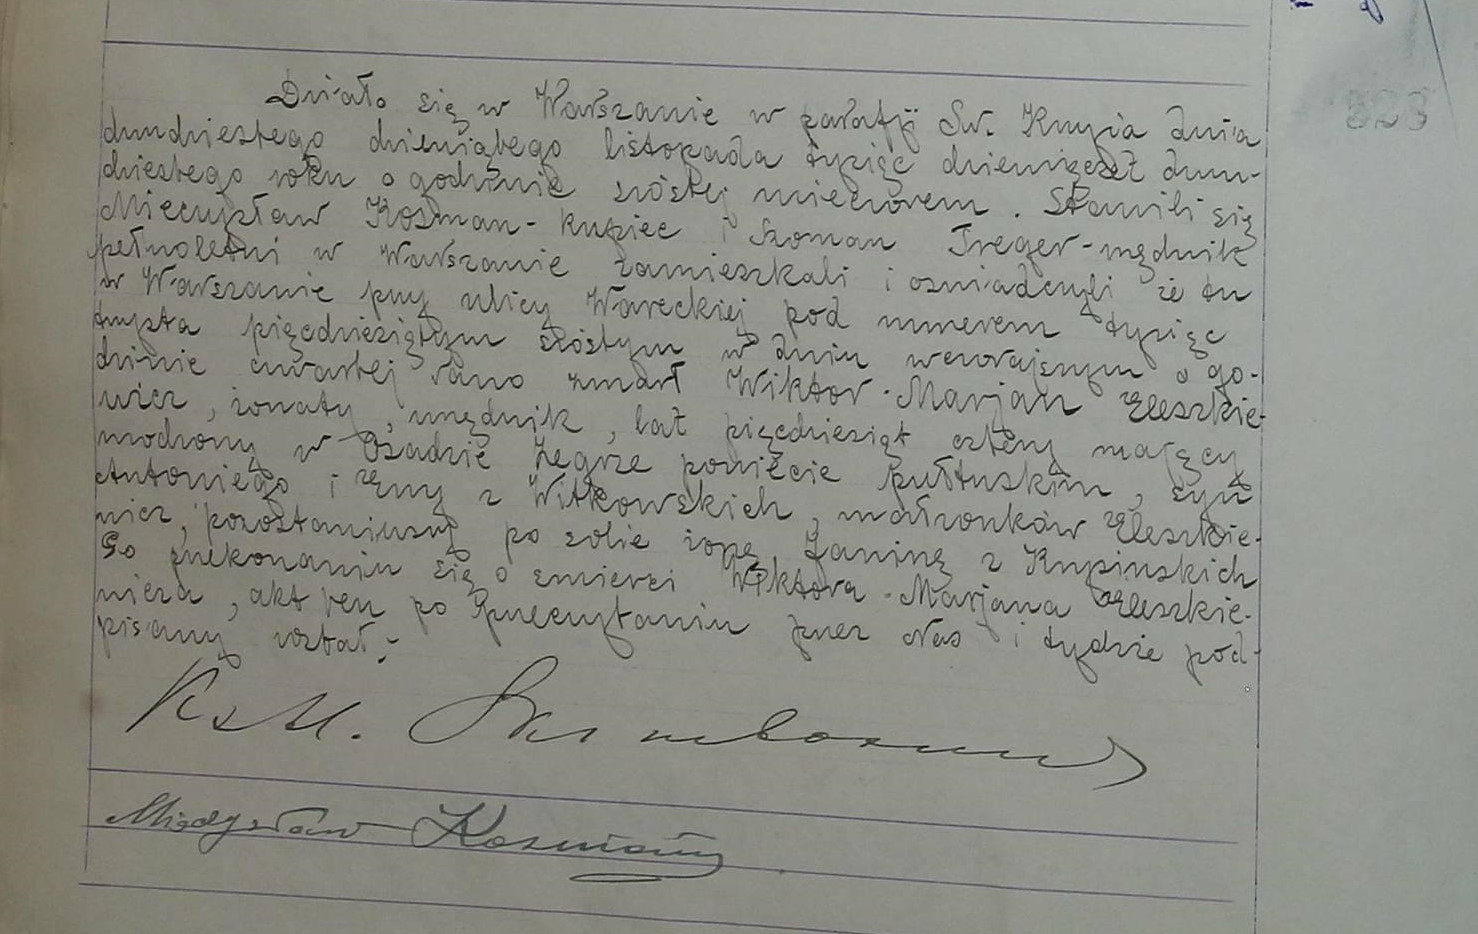 Działo się w Warszawie w parafji Św. Krzyża dnia
dwudziestego dziewiątego listopada tysiąc dziewięćset dwu-
dziestego roku o godzinie szóstej wieczorem. Stawili się
Mieczysław Kosman - kupiec i Szoman Treger - urzędnik
pełnoletni w Warszawie zamieszkali i oświadczyli że tu
w Warszawie przy ulicy Wareckiej pod numerem tysiąc
trzysta pięćdziesiątym szóstym w dniu wczorajszym o go-
dzinie czwartej rano zmarł Wiktor-Marjan Eleszkie-
wicz, żonaty, urzędnik, lat pięćdziesiąt cztery mający
urodzony w Osadzie Zegrze powiecie pułtuskim, syn
Antoniego i Ewy z Witkowskich, małżonków Eleszkie-
wicz, pozostawiwszy po sobie żonę Janinę z Krupińskich
Po przekonaniu się o śmierci Wiktora-Marjana Eleszkie-
wicza, akt ten po przeczytaniu przez Nas i tychże pod-
pisany został;-
Ks M.
Mieczysław Kosman
328